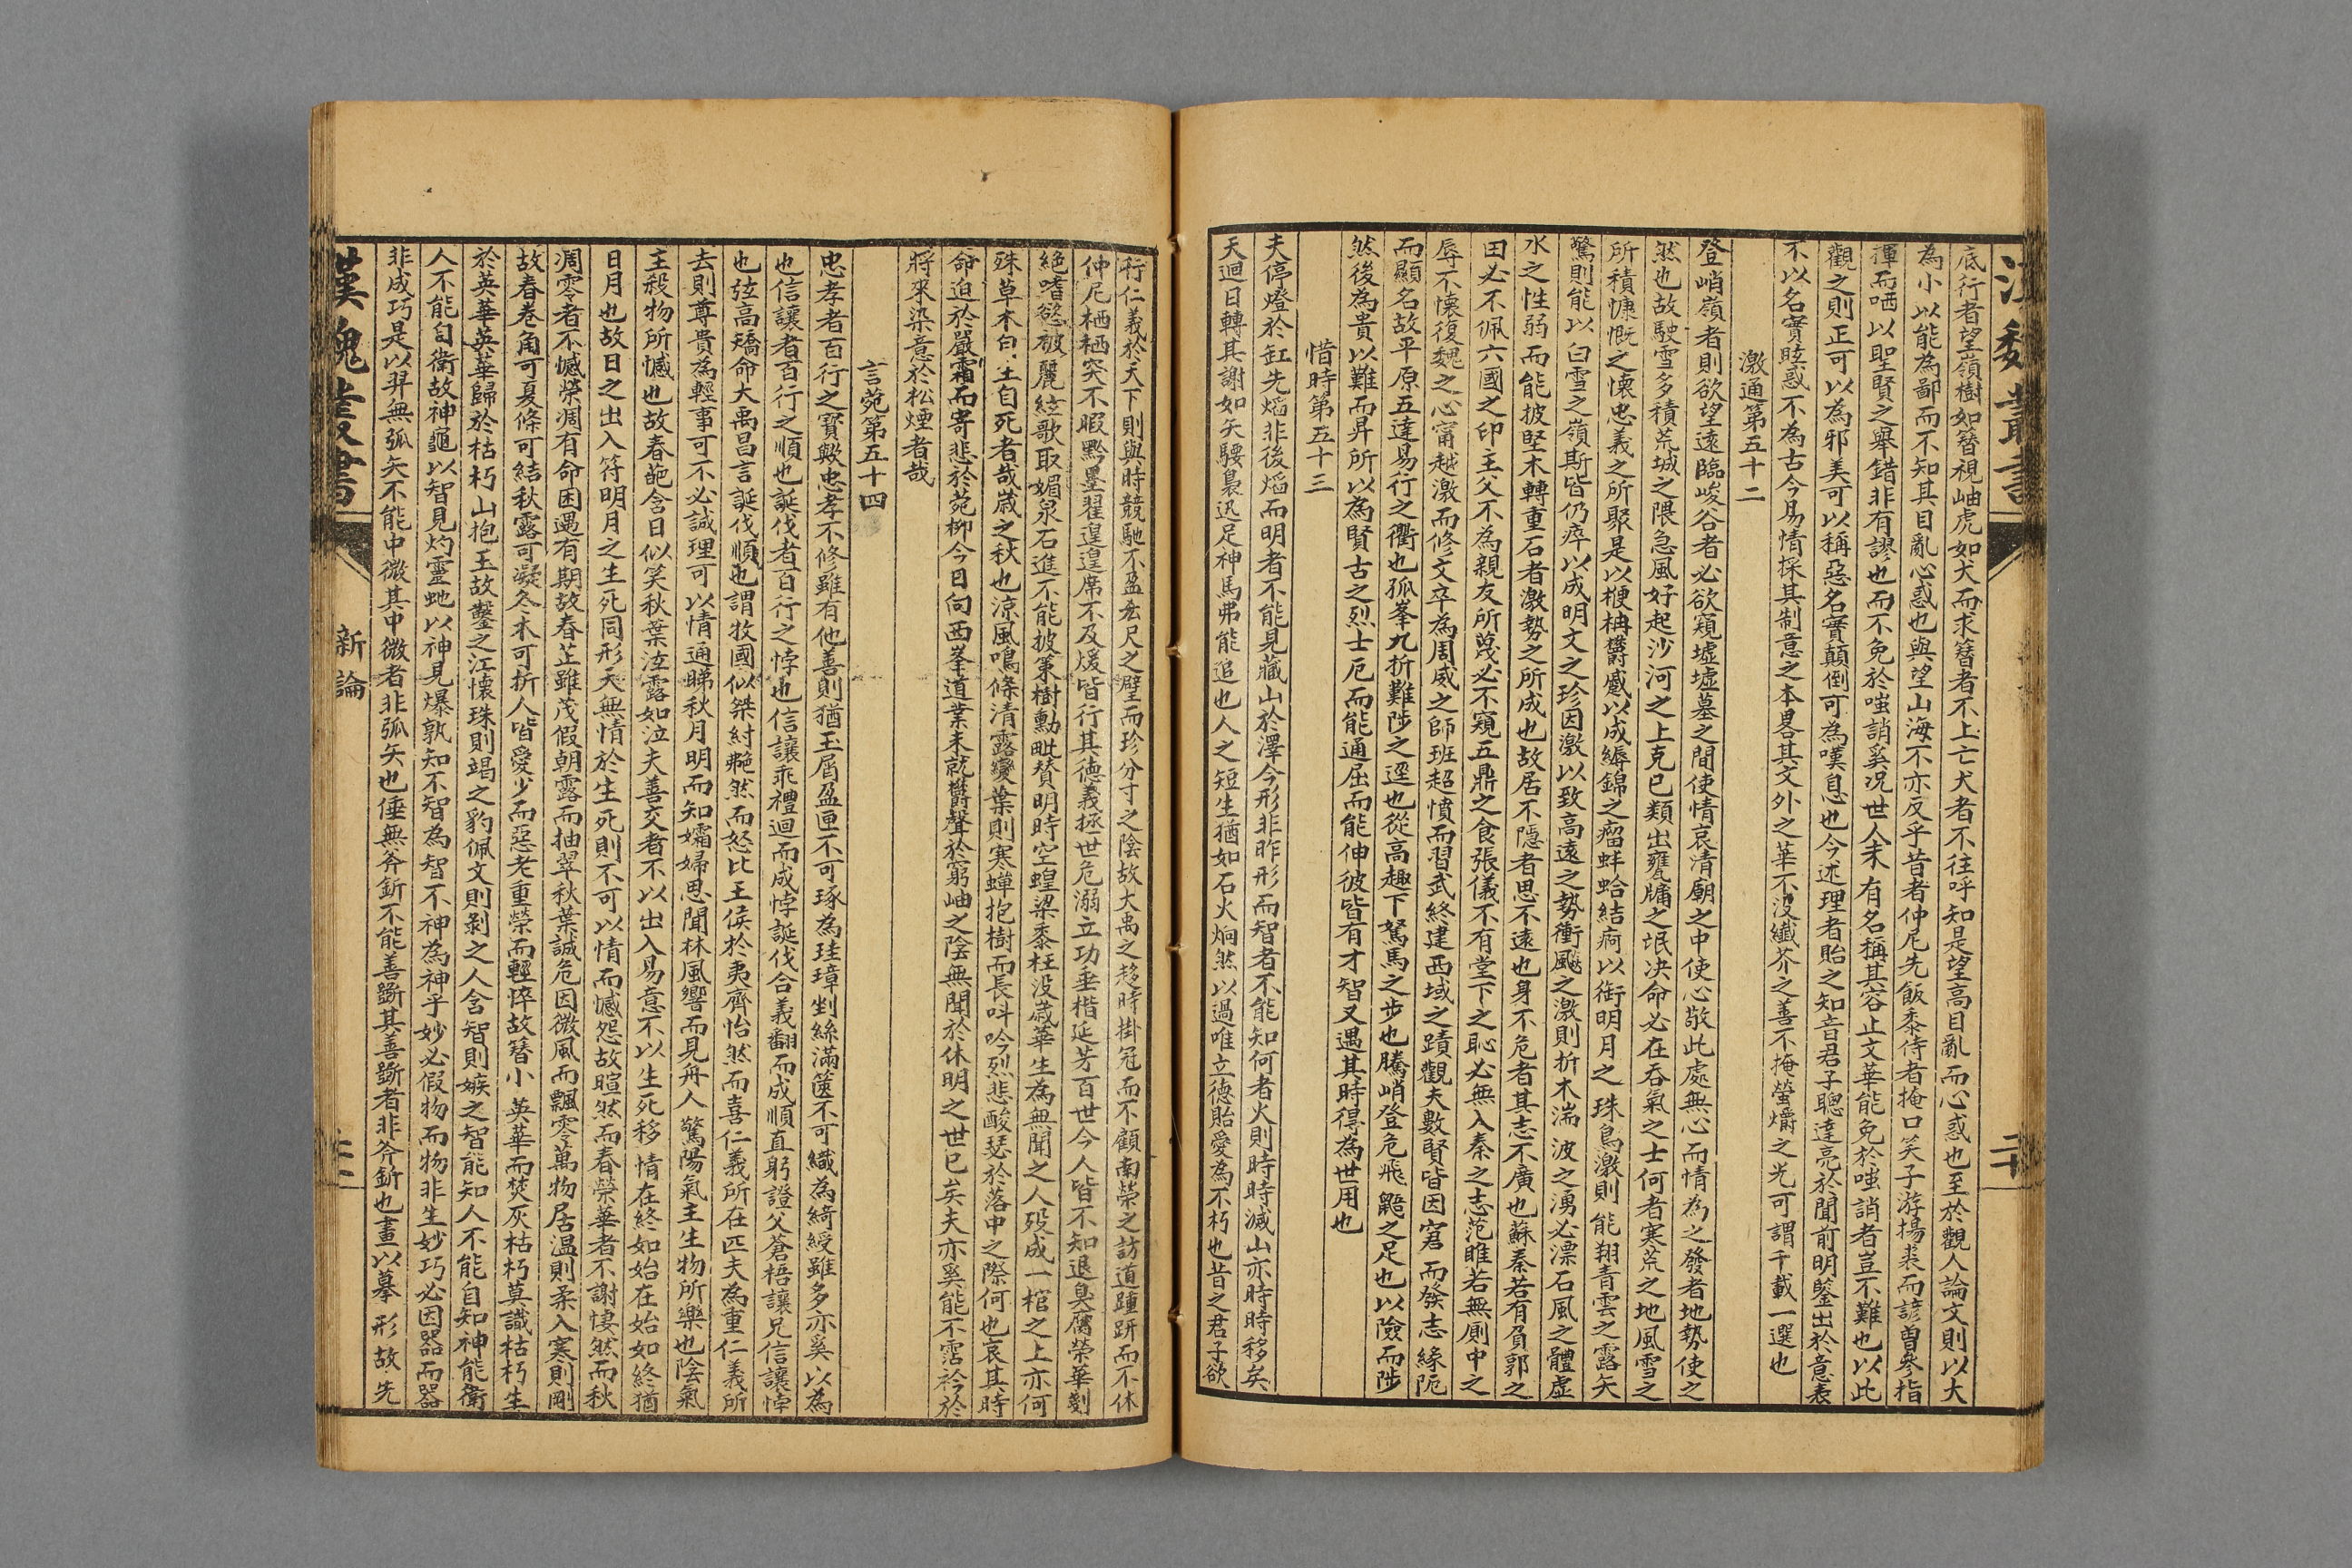 漢魏叢書
二十
底行者望嶺樹如簪視岫虎如犬而求簪者不上亡犬者不往呼知是望高目亂而心惑也至於觀人論文則以大
為小以能為鄙而不知其目亂心惑也與望山海不亦反乎昔者仲尼先飯黍侍者掩口笑子游揚裘而諺曾參指
揮而哂以聖賢之舉錯非有謬也而不免於嗤誚奚况世人未有名稱其容止文華能免於嗤誚者豈不難也以此
觀之則正可以為邪美可以稱惡名實顛倒可為嘆息也今述理者貽之知音君子聰達亮於聞前明鑒出於意表
不以名實眩惑不為古今易情採其制意之本畧其文外之華不沒纖芥之善不掩螢爝之光可謂千載一選也
激通第五十二
登峭嶺者則欲望遠臨峻谷者必欲窺墟墟墓之間使情哀清廟之中使心敬此處無心而情為之發者地勢使之
然也故駛雪多積荒城之隈急風好起沙河之上克已類出甕牖之氓决命必在吞氣之士何者寒荒之地風雪之
所積慷慨之懷忠義之所聚是以梗柟欝蹙以成縟錦之瘤蚌蛤結痾以銜明月之珠鳥激則能翔青雲之露矢
驚則能以白雪之嶺斯皆仍瘁以成明文之珍因激以致高遠之勢衝飈之激則折木湍波之湧必漂石風之體虛
水之性弱而能披堅木轉重石者激勢之所成也故居不隱者思不遠也身不危者其志不廣也蘇秦若有負郭之
田必不佩六國之印主父不為親友所蔑必不窺五鼎之食張儀不有堂下之恥必無入秦之志范雎若無厠中之
辱不懷復魏之心甯越激而修文卒為周威之師班超憤而習武終建西域之蹟觀夫數賢皆因窘而發志緣阨
而顯名故平原五達易行之衢也孤峯九折難陟之逕也從高趣下駑馬之步也騰峭登危飛鼯之足也以險而陟
然後為貴以難而昇所以為賢古之烈士厄而能通屈而能伸彼皆有才智又遇其時得為世用也
惜時第五十三
夫停燈於缸先焰非後焰而明者不能見藏山於澤今形非昨形而智者不能知何者火則時時滅山亦時時移矣
天迴日轉其謝如矢騕褭迅足神馬弗能追也人之短生猶如石火炯然以過唯立德貽愛為不朽也昔之君子欲
行仁義於天下則與時競馳不盈尺之璧而珍分寸之陰故大禹之趍時掛冠而不顧南榮之訪道踵趼而不休
仲尼栖栖突不暇黔墨翟遑遑席不及煖皆行其德義拯世危溺立功垂楷延芳百世今人皆不知退臭腐榮華剗
絶嗜慾被麗絃歌取媚泉石進不能披策樹勳毗賛明時空蝗粱黍枉没歳華生為無聞之人歿成一棺之上亦何
殊草木自生自死者哉歳之秋也涼風鳴條清露變葉則寒蟬抱樹而長呌吟烈悲酸瑟於落中之際何也哀其時
命迫於嚴霜而寄悲於菀柳今日向西峯道業未就欝聲於窮岫之陰無聞於休明之世已矣夫亦奚能不霑衿於
將來染意於松煙者哉
言菀第五十四
忠孝者百行之寶歟忠孝不修雖有他善則猶玉屑盈匣不可琢為珪璋剉絲滿篋不可織為綺綬雖多亦奚以為
也信讓者百行之順也誕伐者百行之悖也信讓乖禮迴而成悖誕伐合義翻而成順直躬證父蒼梧讓兄信讓悖
也弦高矯命大禹昌言誕伐順也謂牧圉似桀紂艴然而怒比王侯於夷齊怡然而喜仁義所在匹夫為重仁義所
去則尊貴為輕事可不必誠理可以情通睇秋月明而知孀婦思聞林風響而見舟人驚陽氣主生物所樂也陰氣
主殺物所憾也故春葩含日似笑秋葉泣露如泣夫善交者不以出入易意不以生死移情在終如始在始如終猶
日月也故日之出入符明月之生死同形天無情於生死則不可以情而憾怨故暄然而春榮華者不謝悽然而秋
凋零者不憾榮凋有命困遇有期故春芷雖茂假朝露而抽翠秋葉誠危因微風而飄零萬物居温則柔入寒則剛
故春卷角可夏條可結秋露可凝冬木可折人皆愛少而惡老重榮而輕悴故簪小英華而焚灰枯朽莫識枯朽生
於英華英華歸於枯朽山抱玉故鑿之江懷珠則竭之豹佩文則剝之人含智則嫉之智能知人不能自知神能衛
人不能自衛故神龜以智見灼靈虵以神見爆孰知不智為智不神為神乎妙必假物而物非生妙巧必因器而器
非成巧是以羿無弧矢不能中微其中微者非弧矢也倕無斧釿不能善斵其善斵者非斧釿也畫以摹形故先
漢魏叢書
新論